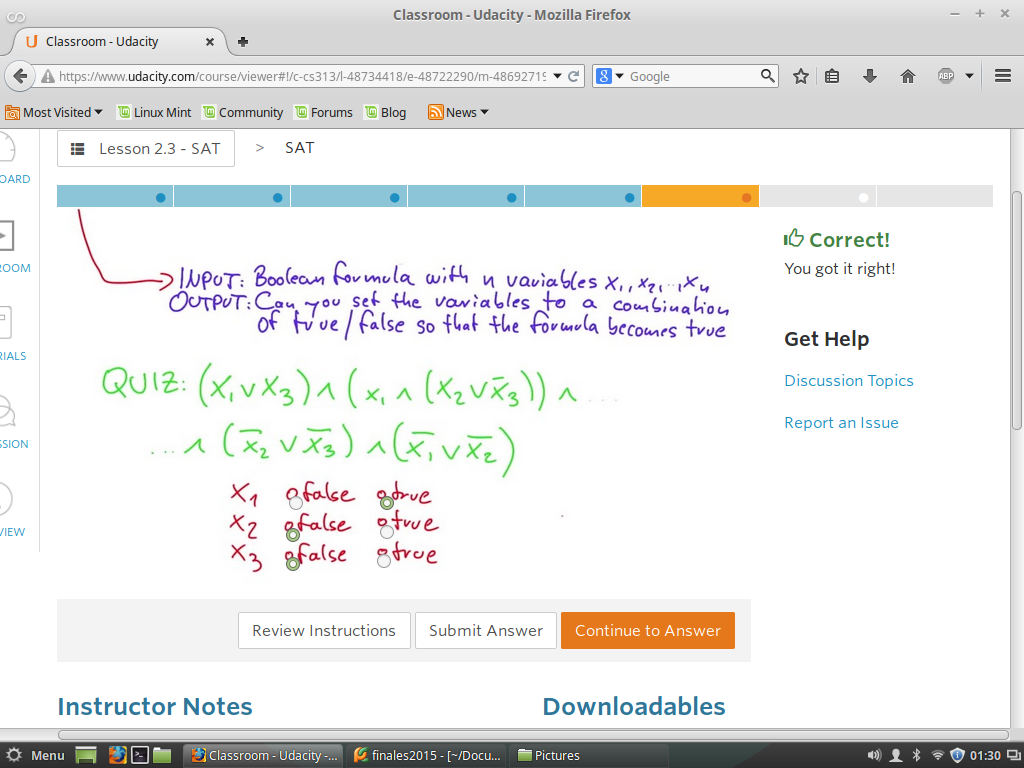 Classroom - Udacity - Mozilla Firefox
Classroom - Udacity
https://www.udacity.com/course/viewer#!/c-cs313/l-48734418/e-48722290/m-48692719
Google
ABP
Most Visited Linux Mint Community Forums Blog News
Lesson 2.3 - SAT > SAT
OARD
ROOM
RIALS
SSION
VIEW
INPUT: Boolean formula with n variables x₁, x₂, ..., xₙ
OUTPUT: Can you set the variables to a combination
of true/false so that the formula becomes true
QUIZ: (x₁ ∨ x₃) ∧ (x₁ ∧ (x₂ ∨ x̅₃)) ∧ ....
... ∧ (x̅₂ ∨ x̅₃) ∧ (x̅₁ ∨ x̅₂)
x₁ false true
x₂ false true
x₃ false true
Correct!
You got it right!
Get Help
Discussion Topics
Report an Issue
Review Instructions Submit Answer Continue to Answer
Instructor Notes Downloadables
Menu Classroom - Udacity -... finales2015 - [~/Docu... Pictures 01:30